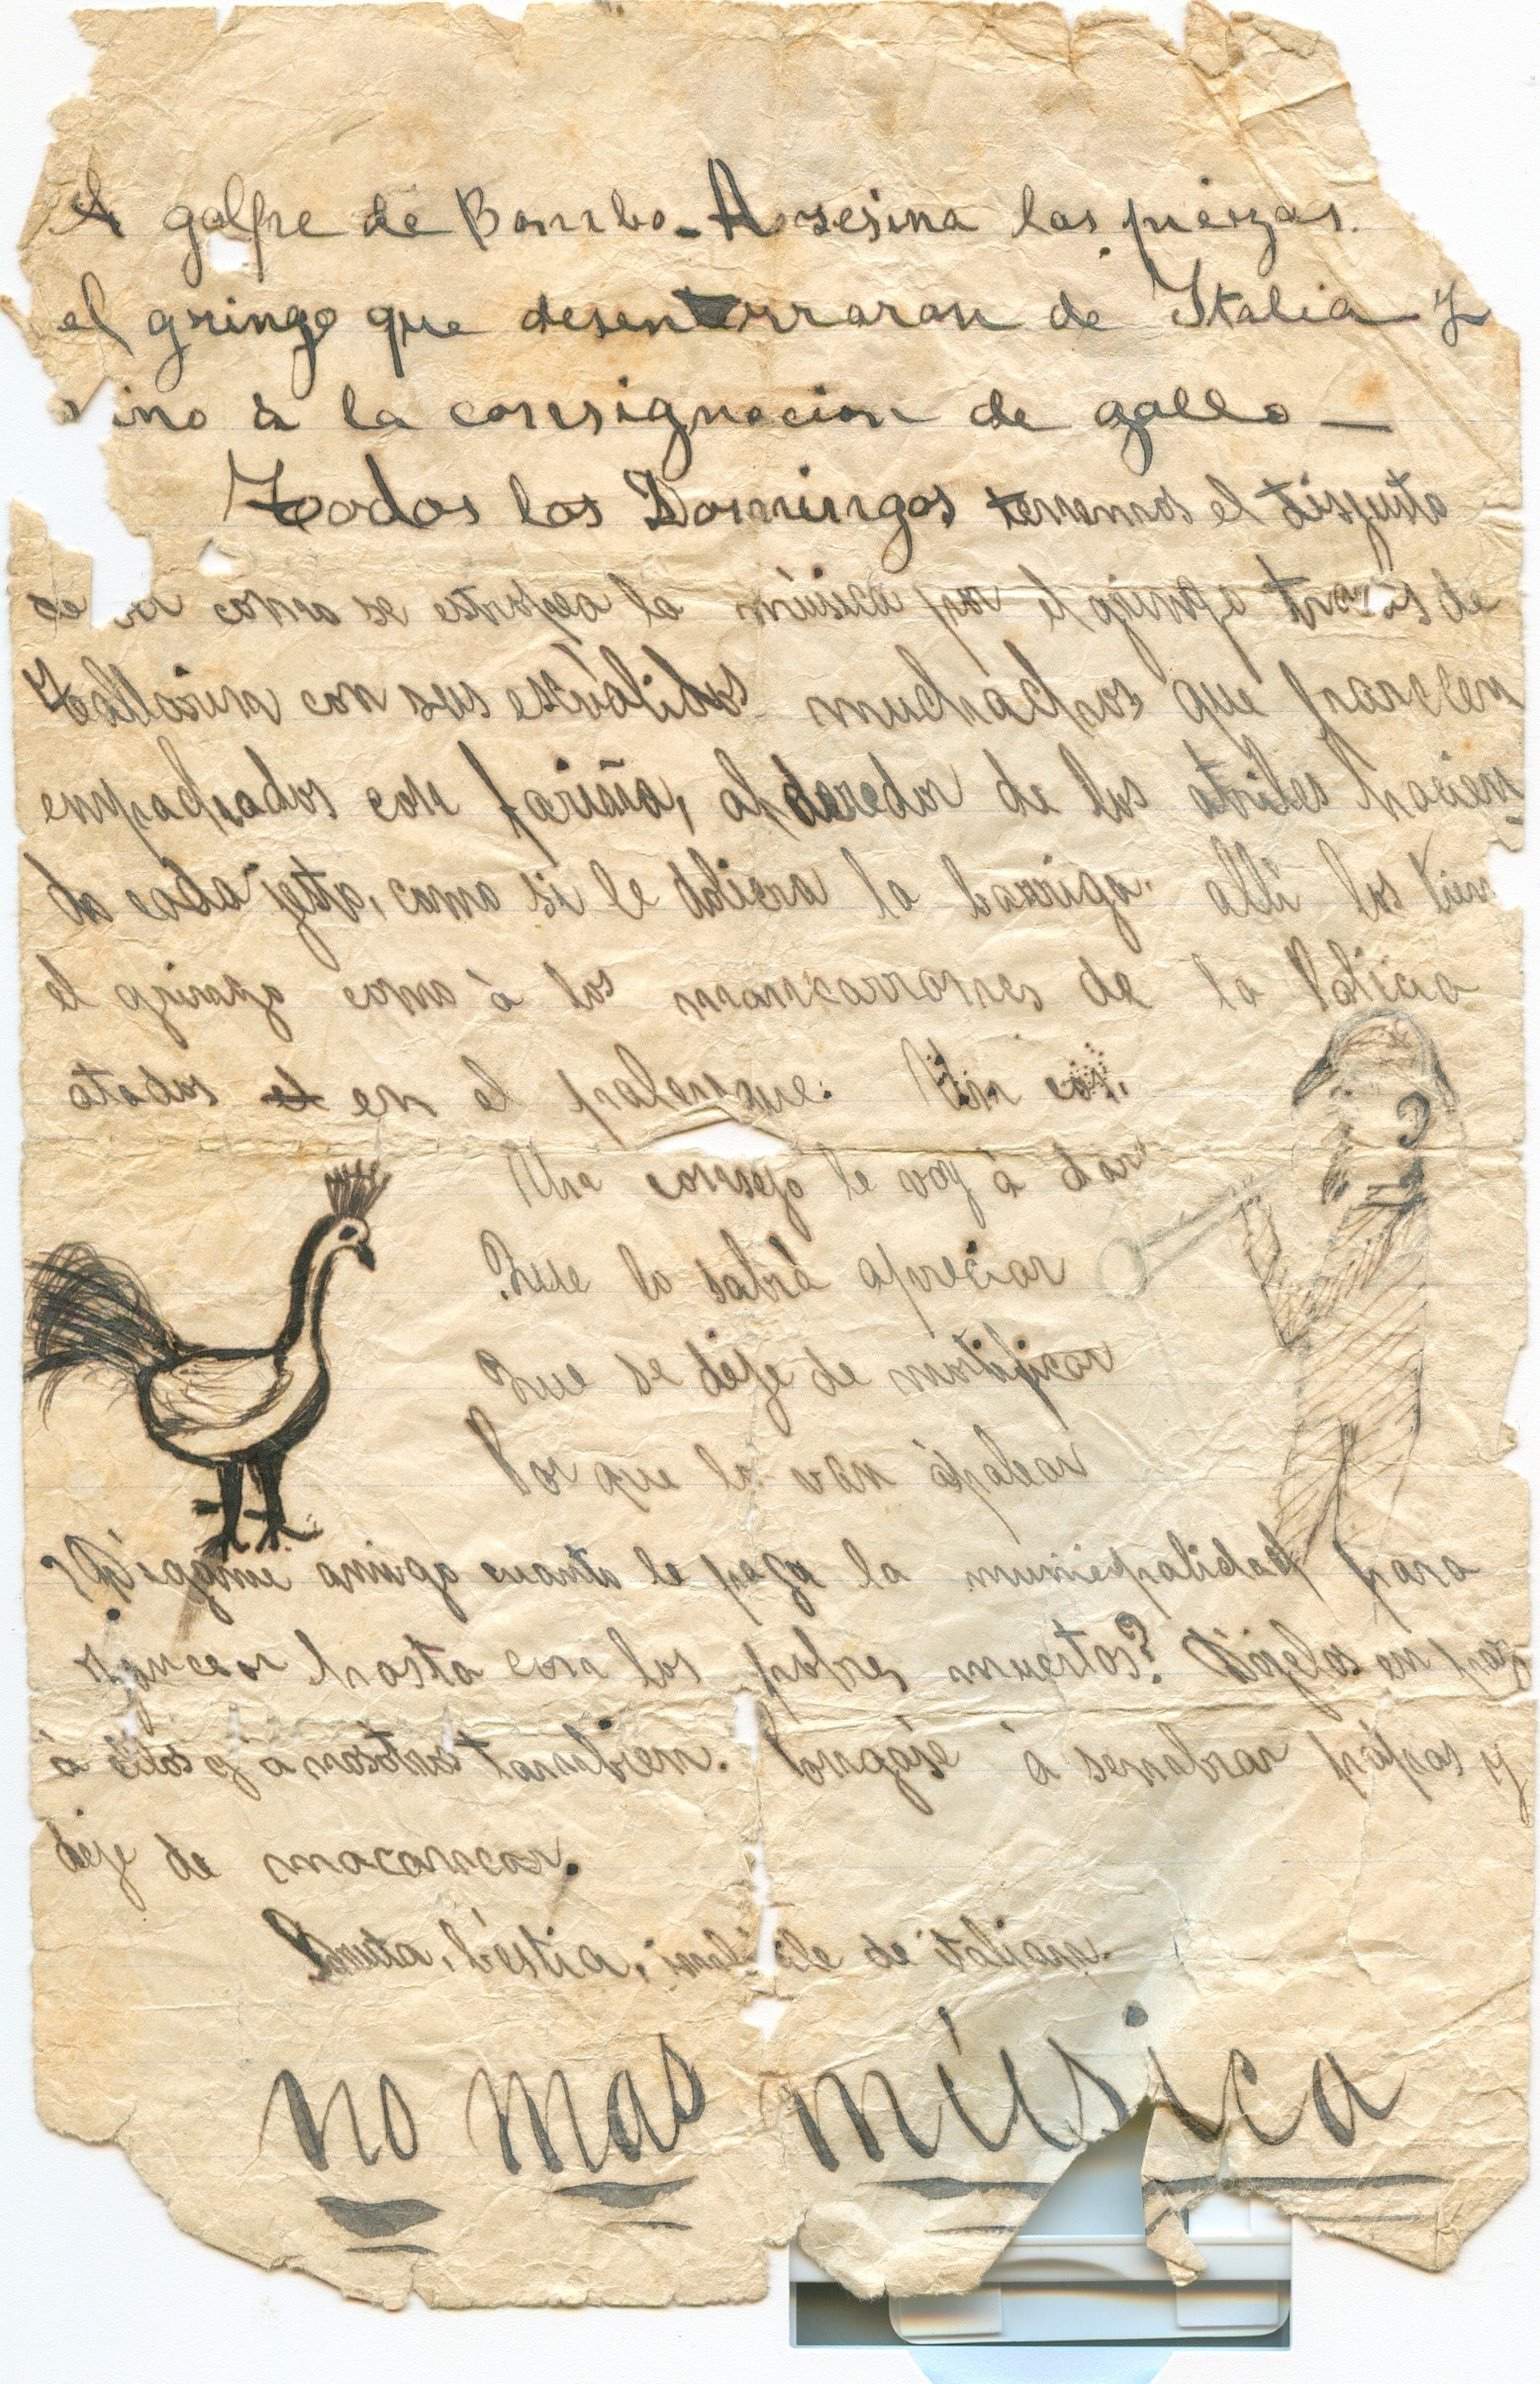 A golpe de Bombo - Asesina las piezas.
el gringo que desenterraran de Italia y
vino a la consignacion de gallo —
Todos los Domingos tenemos el disgusto
de ver como se estropea la música por el gringo de
con sus escuálidos muchachos que parecen
empachados con fariña, alderedor de los atriles hacien-
do cada jesta, como si le doliera la barriga. alli los tien
el gringo como á los mancarrones de la Policia
atados el en el palenque.
Un consejo le voy á dar
Que lo sabrá apreciar
Que se deje de mortificar
Por que lo van ápalear
¿Digame amigo cuanto le paga la municipalidad para
hasta con los pobres muertos? Déjelos en paz
á ellos y á nosotros tambien. Pongase á sembrar pápas y
deje de macanear.
bestia, imbécile de italiano.
no mas música